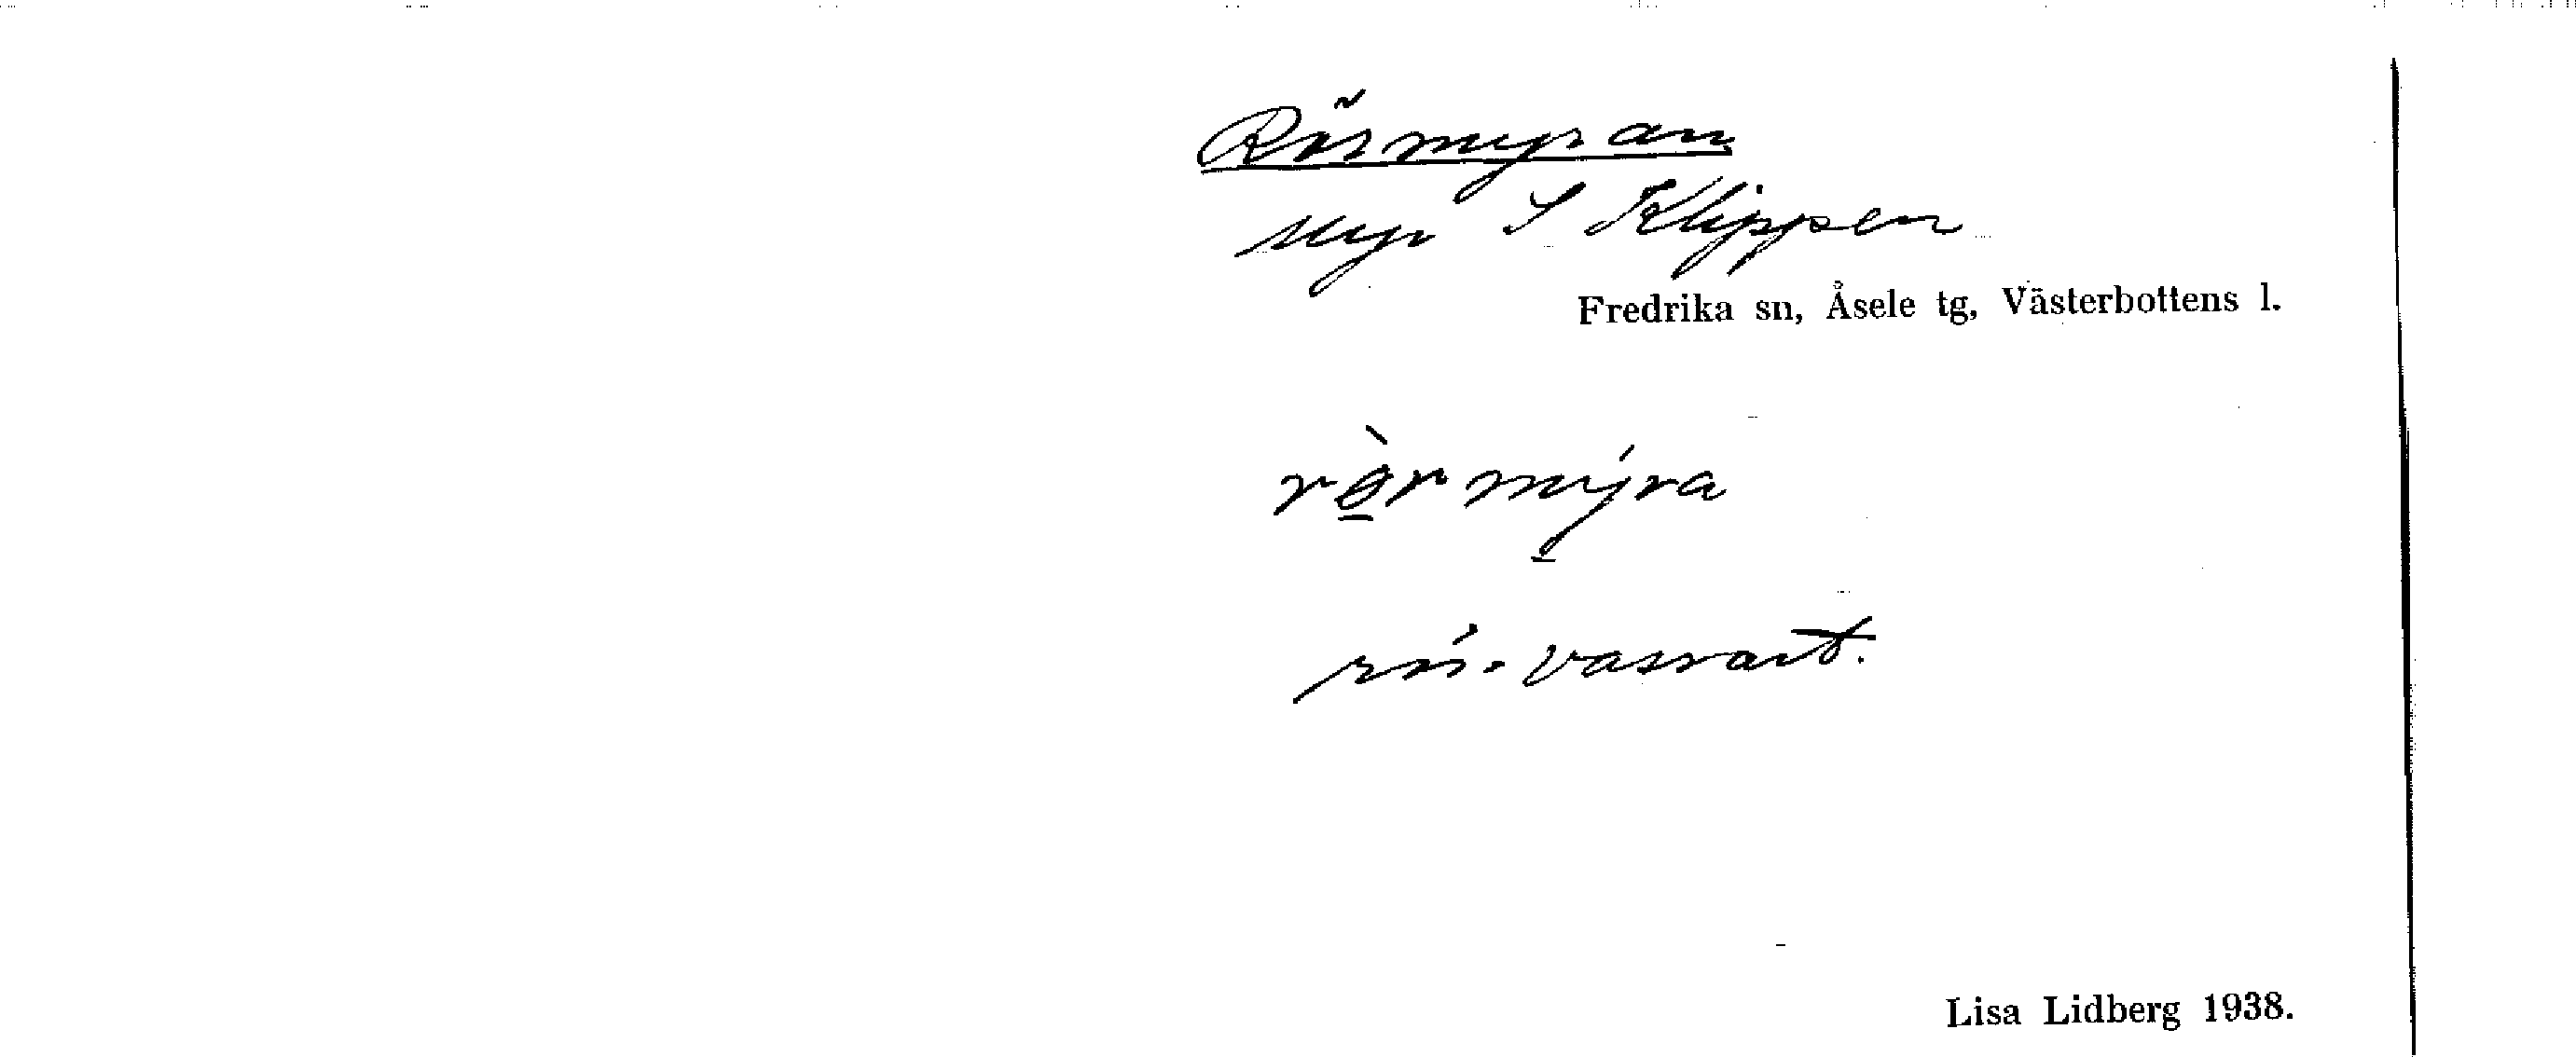 Rörmyran
myr S Klippen
Fredrika sn, Åsele tg, Västerbottens l.
rø̀rmýra
rör- vassart.
Lisa Lidberg 1938.